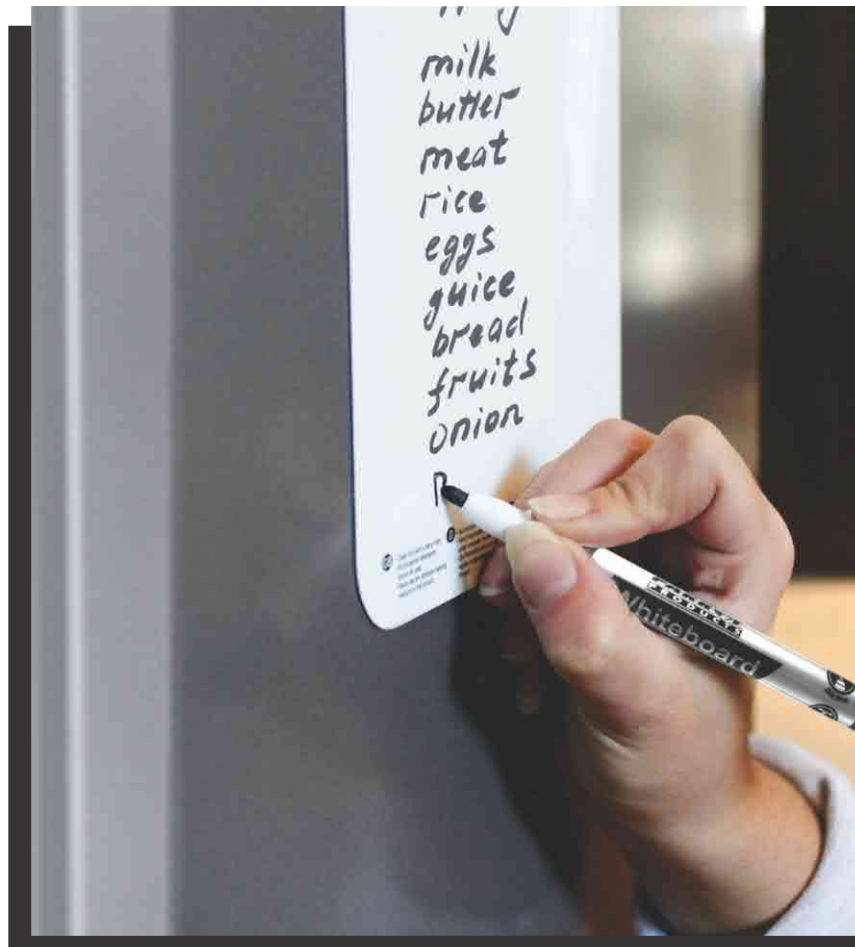 milk
butter
meat
rice
eggs
guice
bread
fruits
onion
PRODUCTS
Whiteboard